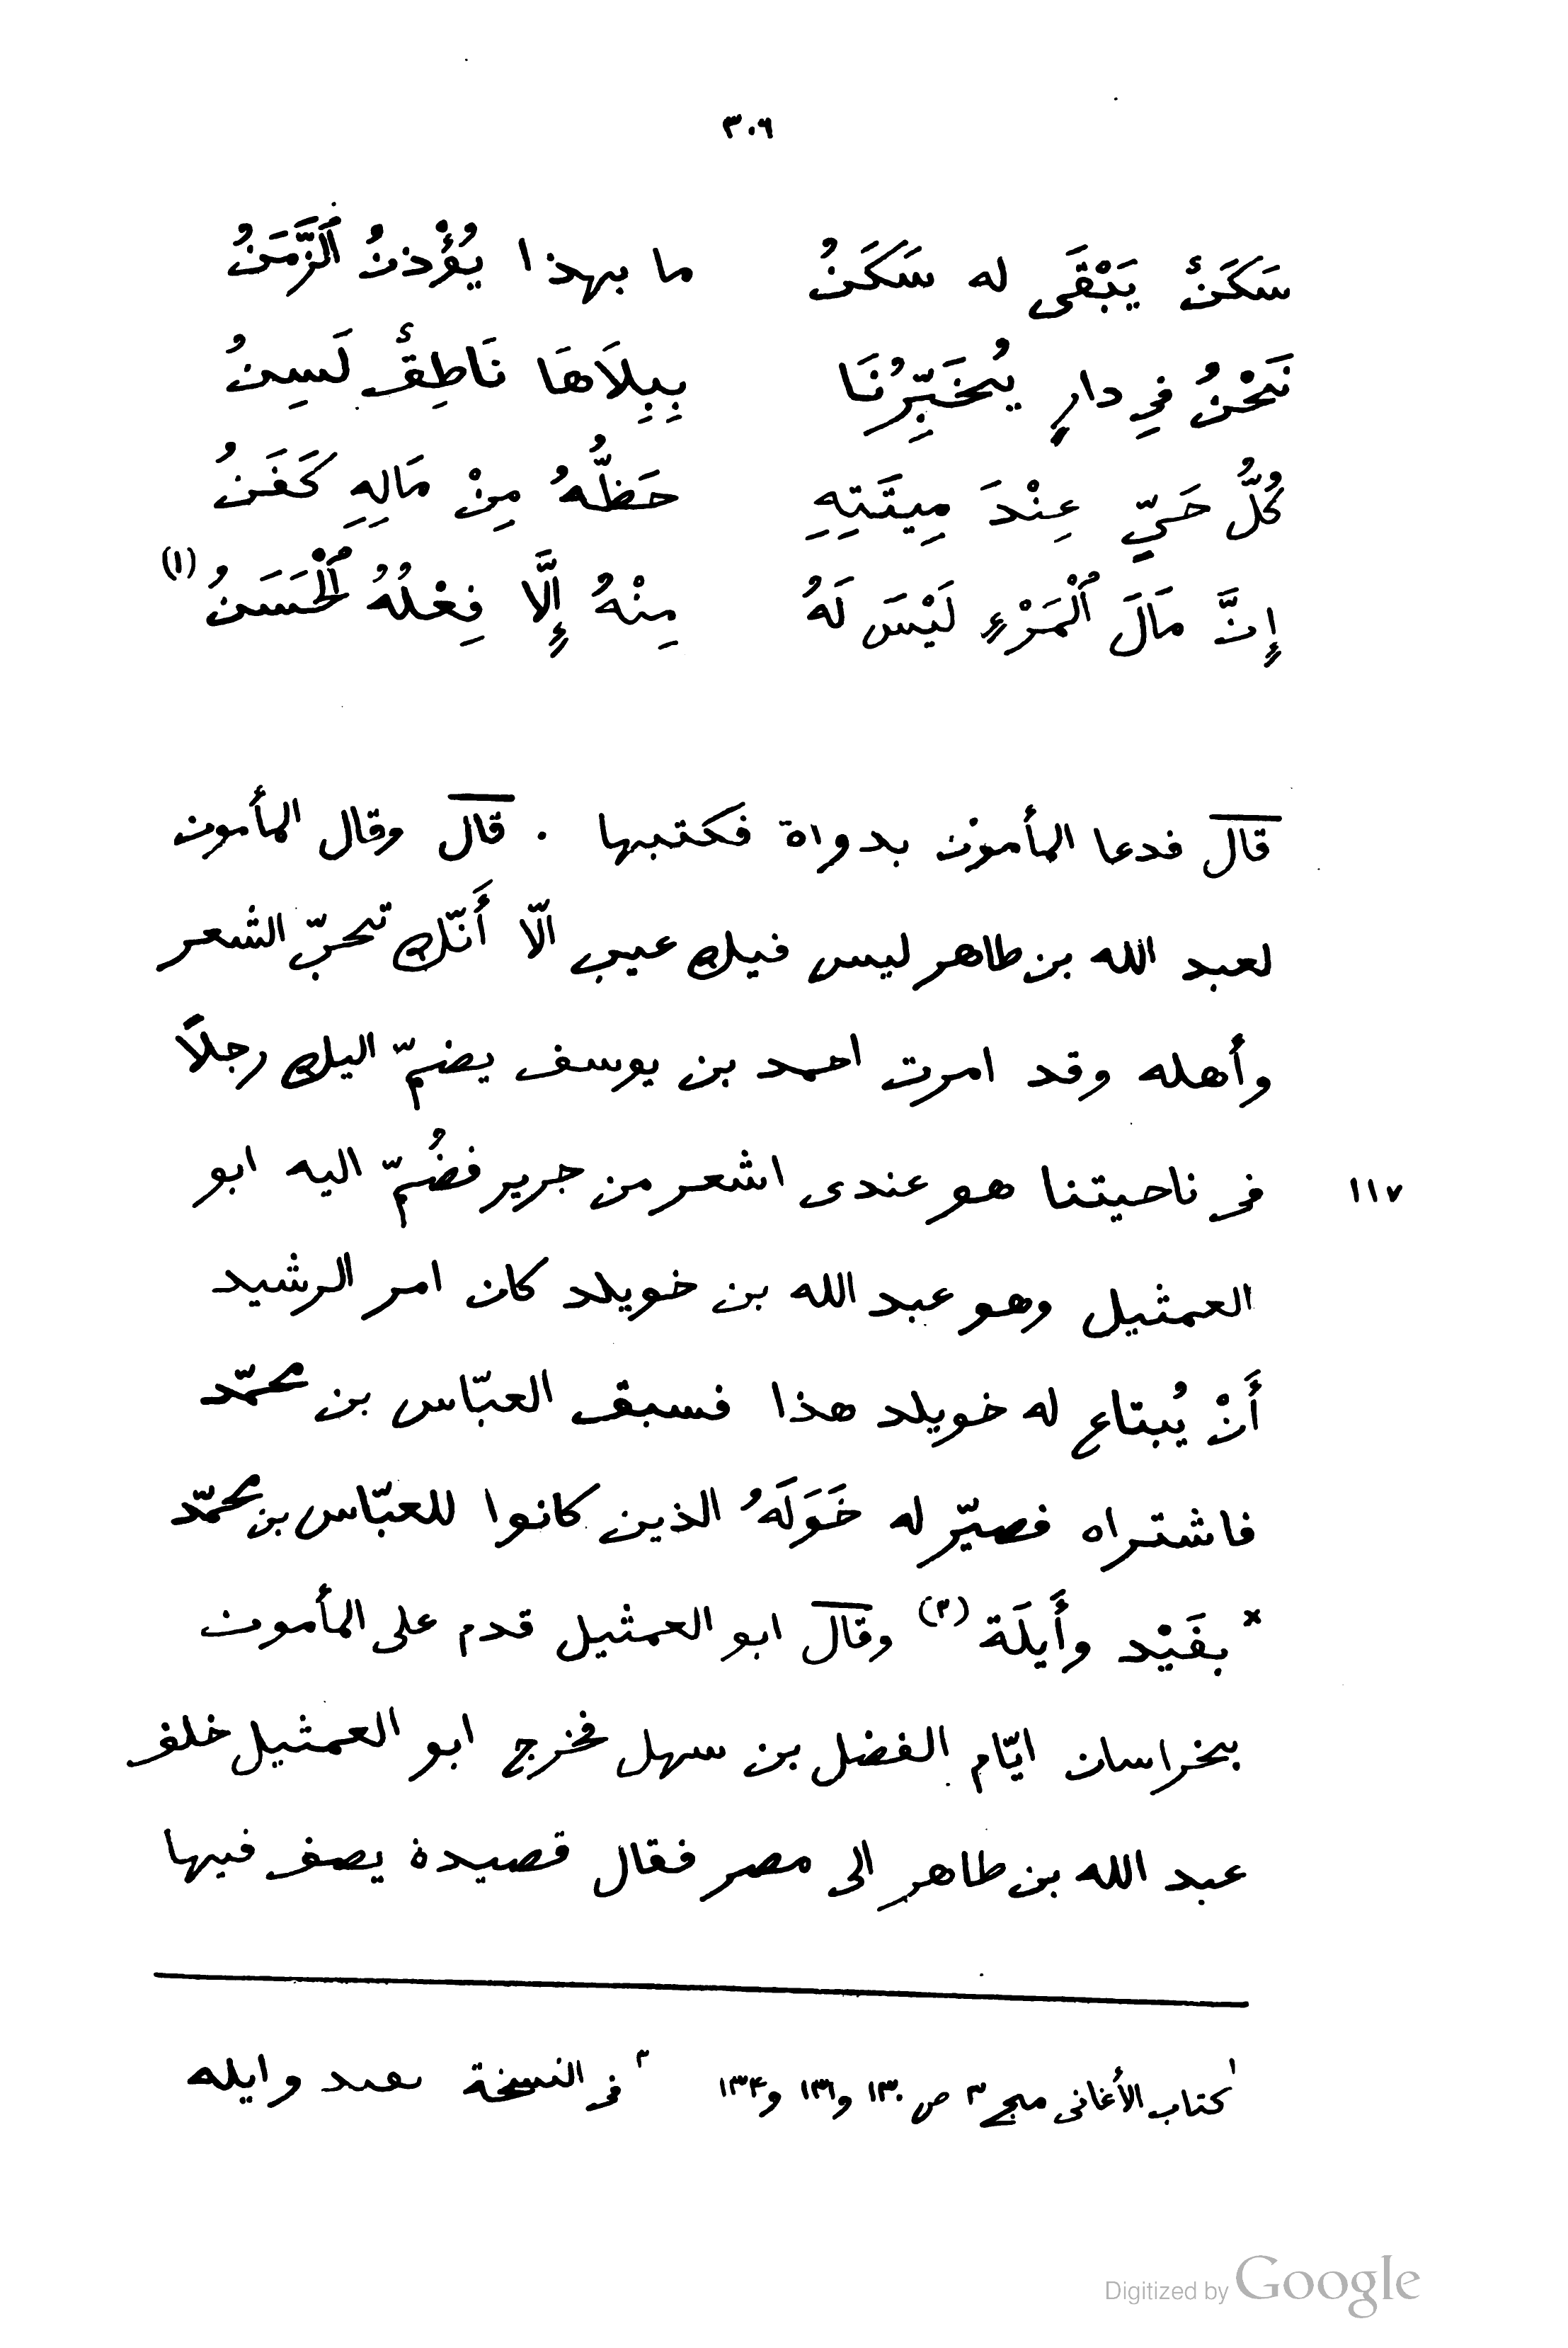 ٣٠٦
سَكَنٌ يَبْقَى له سَكَنُ ما بهذا يُؤْذِنُ ٱلزَّمَنُ
نَحْنُ فِي دارٍ يُخَبِّرُنَا بِبِلَاهَا نَاطِقٌ لَسِنُ
كُلُّ حَيٍّ عِنْدَ مِيتَتِهِ حَظُّهُ مِنْ مَالِهِ كَفَنُ
إِنَّ مَالَ ٱلْمَرْءِ لَيْسَ لَهُ مِنْهُ إِلَّا فِعْلُهُ ٱلْحَسَنُ (١)
قال فدعا المأمون بدواة فكتبها . قال وقال المأمون
لعبد الله بن طاهر ليس فيك عيب الّا أَنّك تحبّ الشعر
وأهله وقد امرت احمد بن يوسف يضمّ اليك رجلاً
١١٧ فى ناحيتنا هو عندى اشعر من جرير فضُمّ اليه ابو
العمثيل وهو عبد الله بن خويلد كان امر الرشيد
أَنْ يُبتاع له خويلد هذا فسبق العبّاس بن محمّد
فاشتراه فصيّر له خَوَلَهُ الذين كانوا للعبّاس بن محمّد
* بفَيْد وأَيلَة (٢) وقال ابو العمثيل قدم على المأمون
بخراسان ايّام الفضل بن سهل فخرج ابو العمثيل خلف
عبد الله بن طاهر الى مصر فقال قصيدة يصف فيها
١ كتاب الأغانى مجـ ٣ ص ١٣٠ و١٣١ و١٣٤ ٢ فى النسخة ٮعٮد وايله
Digitized by Google